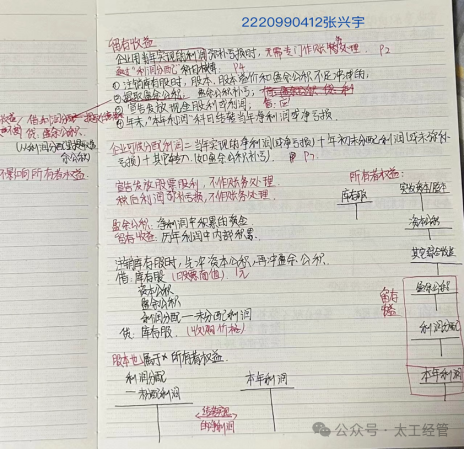 2220990412张兴宇
留存收益
企业用当年实现的利润弥补亏损时，无需专门作账务处理。P2
通过"利润分配"科目核算 P4
①注销库存股时，股本、股本溢价和盈余公积不足冲减的，
②提取盈余公积，盈余公积分录，
③宣告发放现金股利或利润，
④年末，"本年利润"科目结转当年净利润或净亏损。
借：利润分配
贷：盈余公积
不影响所有者权益。
企业可供分配利润＝当年实现的净利润(或净亏损)＋年初未分配利润(或未弥补
亏损)＋其它转入(如盈余公积补亏)。P7
宣告发放股票股利，不作账务处理
税后利润弥补亏损，不作账务处理。
盈余公积：净利润中积累的资金
留存收益：历年利润中内部积累。
注销库存股时，先冲资本公积，再冲盈余公积。
借：库存股(股票面值)1元
资本公积
盈余公积
利润分配—未分配利润
贷：库存股(收购价格)
股本也属于所有者权益.
利润分配
—未分配利润
本年利润
的净利润
所有者权益：
库存股
实收资本/股本
资本公积
其它综合收益
留存
收益
盈余公积
利润分配
本年利润
公众号·太工经管